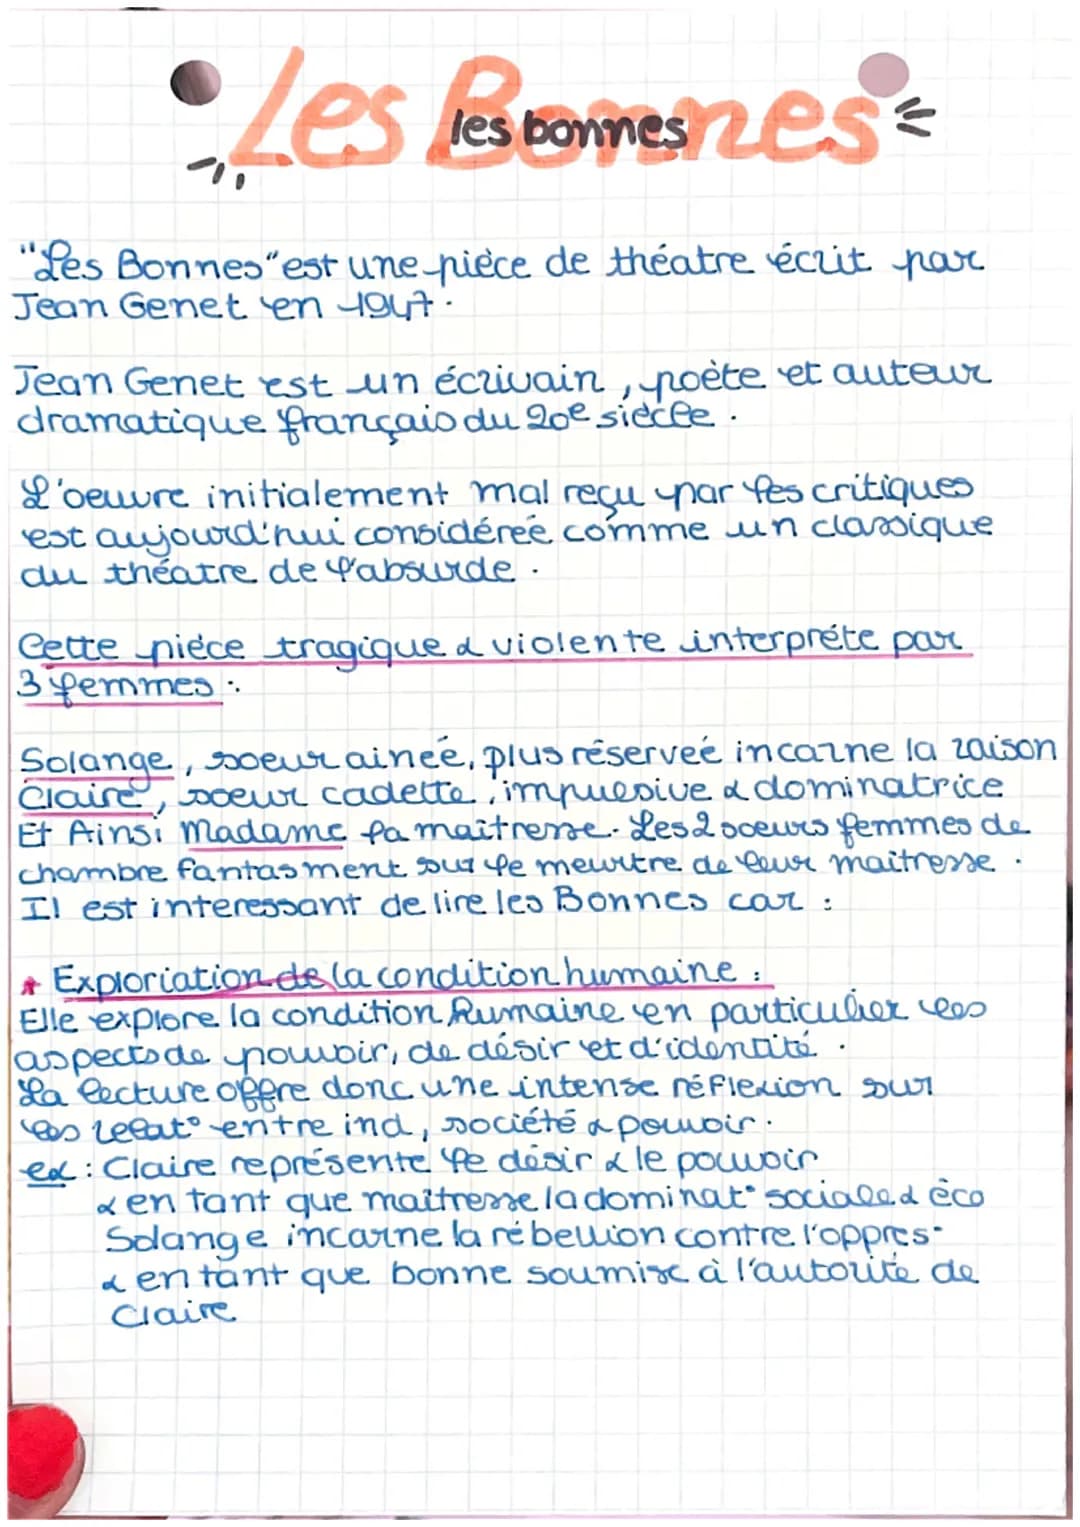 Les Bonnes
les bonnes
"Les Bonnes" est une pièce de théatre écrit par
Jean Genet en 1947.
Jean Genet est un écrivain, poète et auteur
dramatique français du 20e siècle.
L'oeuvre initialement mal reçu par les critiques
est aujourd'hui considérée comme un classique
du théatre de l'absurde.
Cette pièce tragique & violente interpréte par
3 femmes :
Solange, soeur ainée, plus réservée incarne la raison
Claire, soeur cadette, impulsive & dominatrice
Et Ainsi Madame la maîtresse. Les 2 soeurs femmes de
chambre fantasment sur le meurtre de leur maîtresse.
Il est interessant de lire les Bonnes car :
* Exploriation de la condition humaine :
Elle explore la condition humaine en particulier les
aspects de pouvoir, de désir et d'identité.
La lecture offre donc une intense réflexion sur
les relat° entre ind, société & pouvoir.
ex : Claire représente le désir & le pouvoir
& en tant que maîtresse la dominat° sociale & éco
Solange incarne la rébellion contre l'oppres-
& en tant que bonne soumise à l'autorité de
Claire